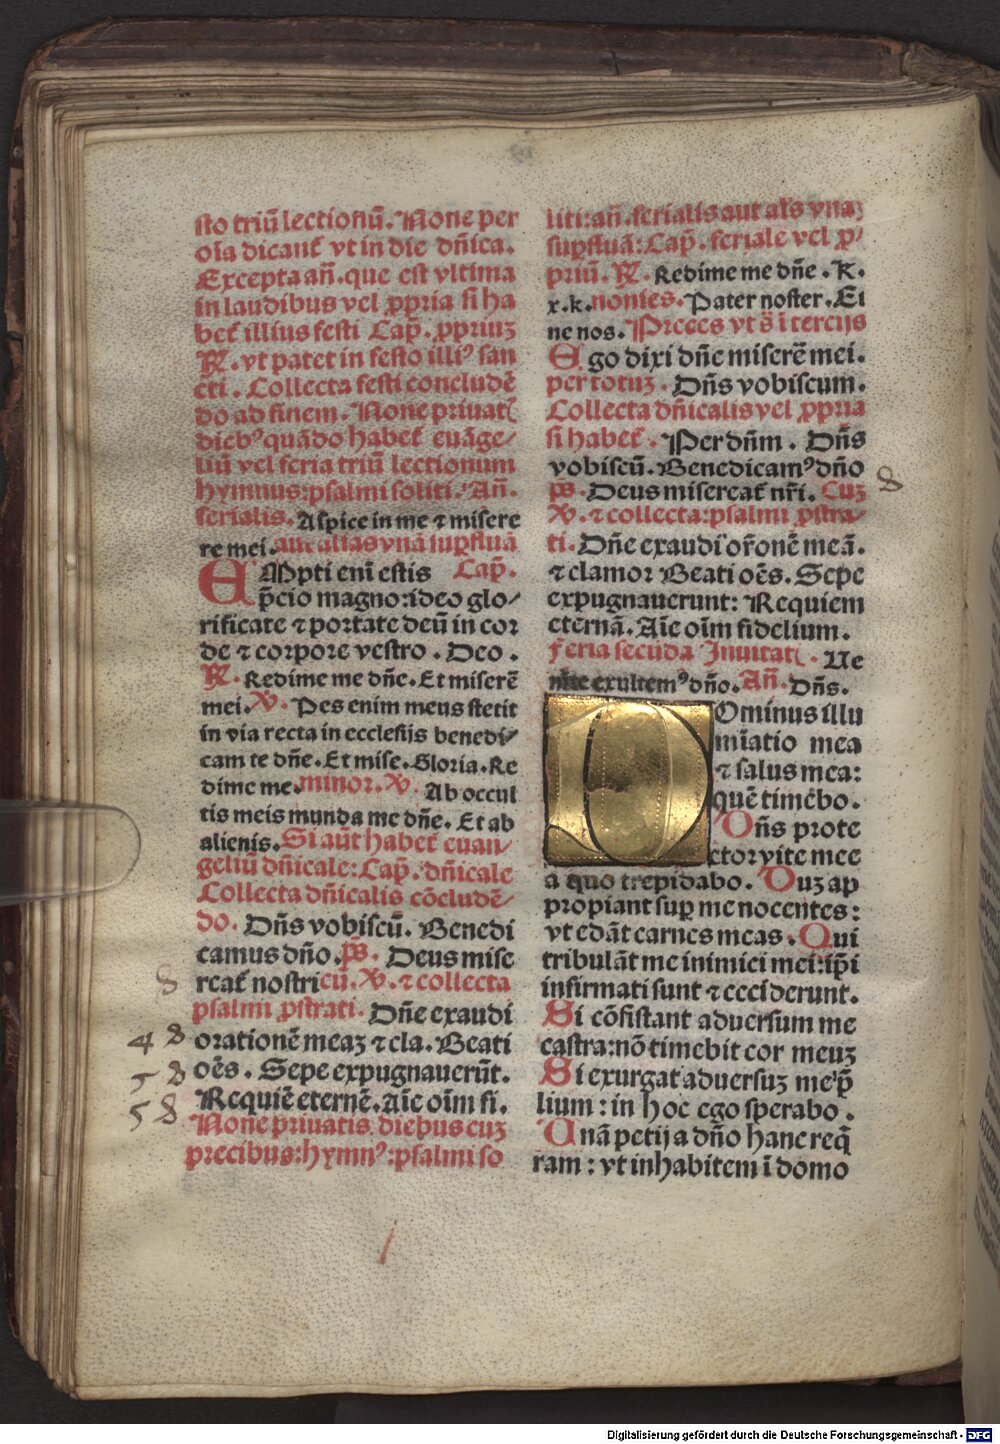 sto triũ lectionũ. None per
oĩa dicant̃ vt in die dñica.
Excepta añ. que est vltima
in laudibus vel ꝓpria si ha
bet̃ illius festi Cap̃. ꝓpriuʒ
℟. vt patet in festo illiꝰ san
cti. Collecta festi concludẽ
do ad finem. None priuat͛
diebꝰ quãdo habet̃ euãge⸗
liũ vel feria triũ lectionum
hymnus: psalmi soliti. Añ.
ferialis. Aspice in me ⁊ misere
re mei. aut alias vnã suꝑfluã
EMpti enĩ estis Cap̃.
p̃cio magno: ideo glo⸗
rificate ⁊ portate deũ in cor
de ⁊ corpore vestro. Deo.
℟. Redime me dñe. Et miserẽ
mei. ℣. Pes enim meus stetit
in via recta in ecclesijs benedi⸗
cam te dñe. Et mise. Gloria. Re
dime me. minor. ℣. Ab occul
tis meis munda me dñe. Et ab
alienis. Si aũt habet̃ euan⸗
geliũ dñicale: Cap̃. dñicale
Collecta dñicalis cõcludẽ⸗
do. Dñs vobiscũ. Benedi
camus dño. p̃s. Deus mise
reat̃ nostri cũ. ℣. ⁊ collecta
8
psalmi ꝓstrati. Dñe exaudi
orationẽ meaʒ ⁊ cla. Beati
4 8
oẽs. Sepe expugnauerũt.
5 8
Requiẽ eternẽ. Aĩe oĩm fi.
5 8
None priuatis diebus cuʒ
precibus: hymnꝰ: psalmi so
liti: añ. ferialis aut al's vnaʒ
suꝑfluã: Cap̃. feriale vel ꝓ⸗
priũ. ℟. Redime me dñe. K.
x. k. nonies. Pater noster. Et
ne nos. Preces vt s̃ ĩ tercijs
Ego dixi dñe miserẽ mei.
per totuʒ. Dñs vobiscum.
Collecta dñicalis vel ꝓpria
si habet̃. Per dñm. Dñs
vobiscũ. Benedicamꝰ dño
8
p̃s. Deus misereat̃ nr̃i. Cuʒ
℣. ⁊ collecta: psalmi ꝓstra⸗
ti. Dñe exaudi or̃onẽ meã.
⁊ clamor Beati oẽs. Sepe
expugnauerunt: Requiem
eternã. Aĩe oĩm fidelium.
Feria secũda Inuitat͛. Ue
nite exultemꝰ dño. Añ. Dñs.
DOminus illu
mĩatio mea
⁊ salus mea:
quẽ timẽbo.
Dñs prote
ctor vite mee
a quo trepidabo. Duʒ ap
propiant suꝑ me nocentes:
vt edãt carnes meas. Qui
tribulãt me inimici mei: ip̃i
infirmati sunt ⁊ ceciderunt.
Si cõsistant aduersum me
castra: nõ timebit cor meuʒ
Si exurgat aduersuʒ me p̃
lium: in hoc ego sperabo.
Unã petij a dño hanc req̃
ram: vt inhabitem ĩ domo
Digitalisierung gefördert durch die Deutsche Forschungsgemeinschaft - DFG